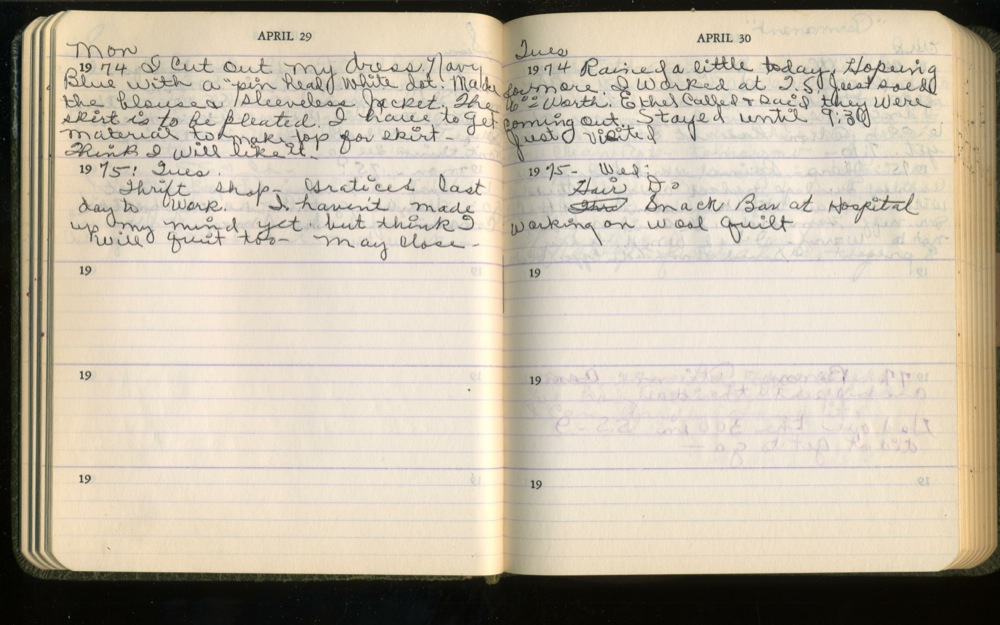 APRIL 29
Mon
1974 I Cut out my dress. Navy
Blue with a "pin head" White dot. Made
the blouse & sleeveless Jacket. The
skirt is to be pleated. I have to get
material to make top for skirt -
Think I will like it.
1975: Tues.
Thrift shop - last
day to work. I havent made
up my mind yet but think I
will quit too - May close -
19
19
19
APRIL 30
Tues
1974 Rained a little today, Hoping
for more. I worked at T.S. Just sold
Worth. Ethel Called & said they were
coming out. Stayed until 9:30
Just visited
1975 - Wed:
Hair Do
Snack Bar at Hospital
Working on wool quilt
19
19
19